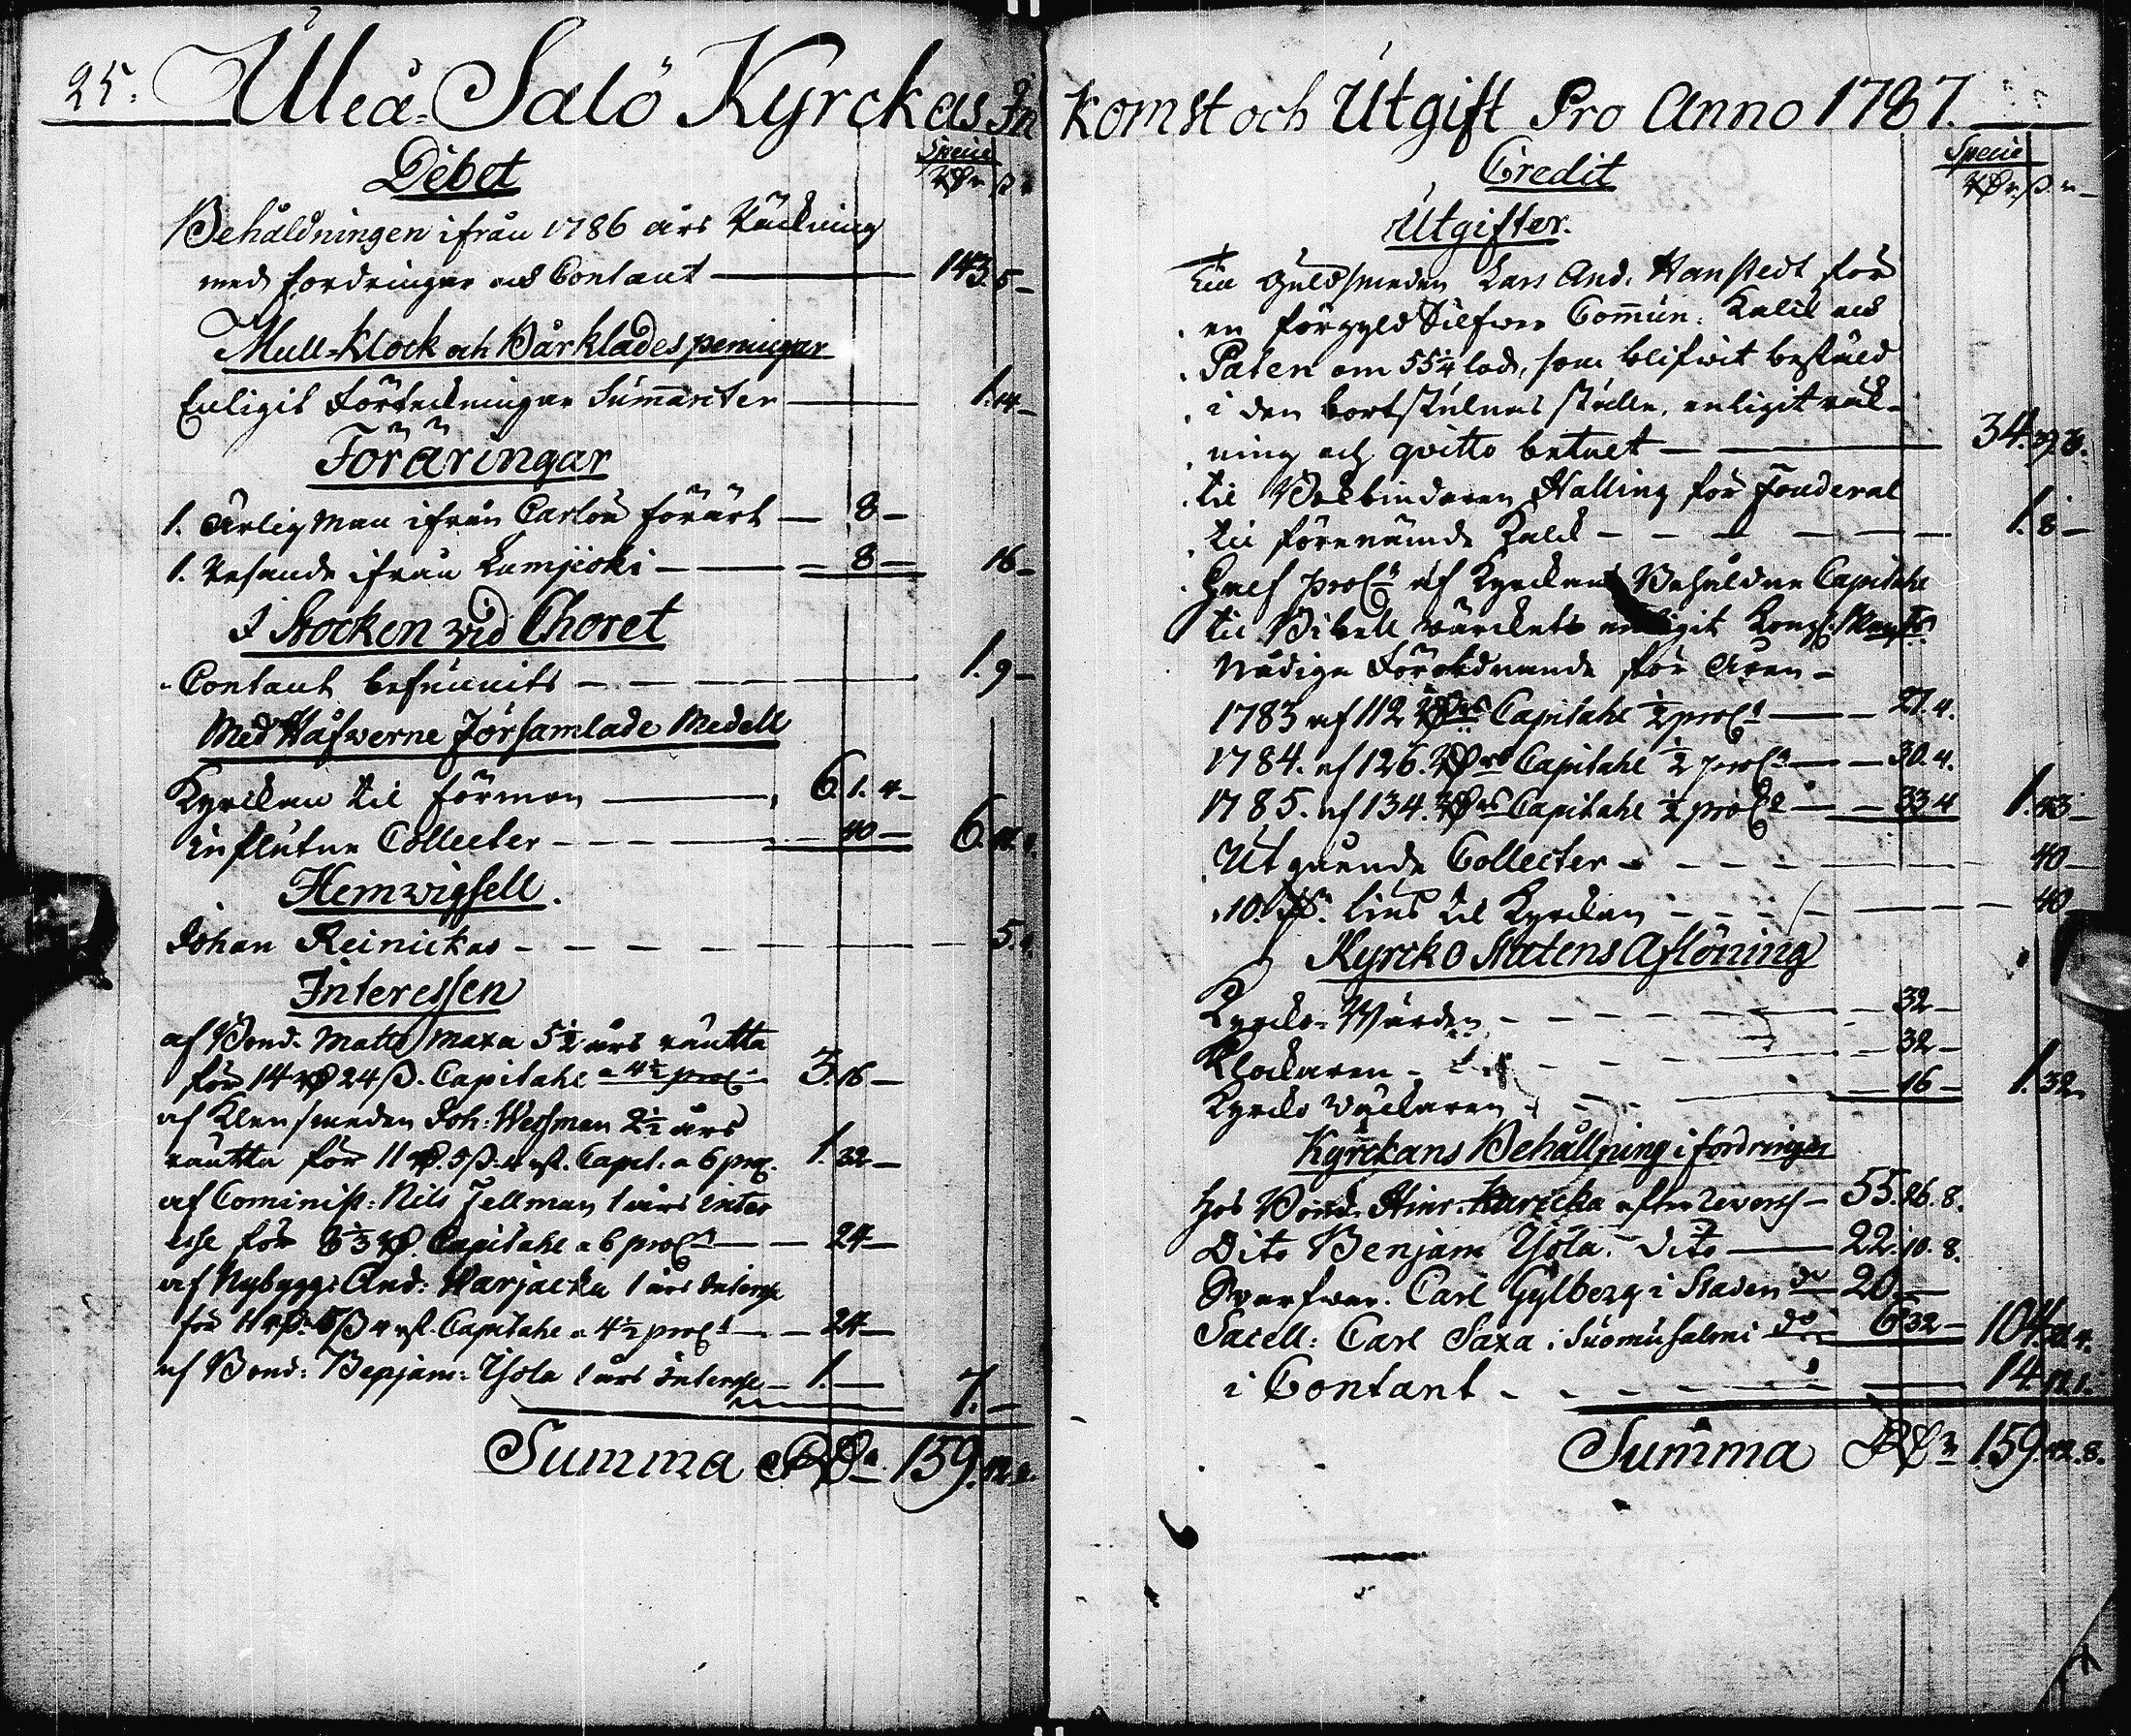 25. Uleå-Salö Kyrckas In
Debet
Specie
Rdr ß r
Behåldningen ifrån 1786 års Räckning
med fordringar och Contant — 143. 5 —
Mull-Klock och Bårklädes peningar
Enligit Förteckningar Summariter — 1. 14 —
Föräringar
1. Ärlig Man ifrån Carlöu förärt — 8 —
1. Resande ifrån Lumijoki — 8 — 16 —
I Stocken vid Choret
Contant befunnits — 1. 9 —
Med Håfverne Församlade Medell
Kyrckan til förmon — 6. 1. 4 —
Influtne Collecter — 40 — 6.
Hemvigsell.
Johan Reinickas — 5.
Interessen
af Bond. Matts Maxa 5½ års räntta
för 14 Rd 24 ß. Capitahl a 4½ proCt 3. 16 —
af Klensmeden Joh: Wessman 2½ års
räntta för 11 Rd. 5 ß. 4 rst. Capit: a 6 proC. 1. 32 —
af Cominist: Nils Fellman 1 års Inter
esse för 8⅓ Rd. Capitahl a 6 proCt — 24 —
af Nybygg: And: Harjacka 1 års Interesse
för 11 Rd. 5 ß 4 rst. Capitahl a 4½ proCt — 24 —
af Bond: Benjam: Ysola 1 års Interesse — 1. — 7. —
Summa Rdr 159.
komst och Utgift Pro Anno 1787.
Credit
Specie
Rdr. ß. r
Utgifter.
Til Guldsmeden Lars And. Hanstedt för
en förgyld Silfwer Commun: Kalck och
Paten om 55¼ lod, som blifwit bestäld
i den bortstulnas ställe, enligit räck-
ning och qvitto betalt — 34.
til Bokbindaren Halling för Fouderal
til förenämde Kalck — 1. 8 —
Half proCt af Kyrckans Behåldne Capitahl
til Bibell Wärckets enligit Kongl. Mayts
Nådige Förordnande för Åren —
1783 af 112 Rdrs Capitahl ½ proCt — 27. 4.
1784. af 126. Rdrs Capitahl ½ proCt — 30. 4.
1785. af 134. Rdrs Capitahl ½ proCt — 33. 4 1. 43 —
Utgående Collecter — 40 —
10. ljus til Kyrckan — 40
Kyrcko Statens Aflöning
Kyrcko-Wärden — 32 —
Klockaren — 32 —
Kyrcko Wäckaren — 16 — 1. 32
Kyrckans Behållning i fordringar
hos Bond. Hinr. Karicka efter revers — 55. 26. 8.
Dito Benjam Ysola. dito — 22. 10. 8.
Swarfwar. Carl Gylberg i Staden do — 20. —
Sacell: Carl Saxa i Suomusalmi do — 6 32 — 104. 21. 4.
i Contant — 14. 12. 1.
Summa Rdr 159. 12. 8.